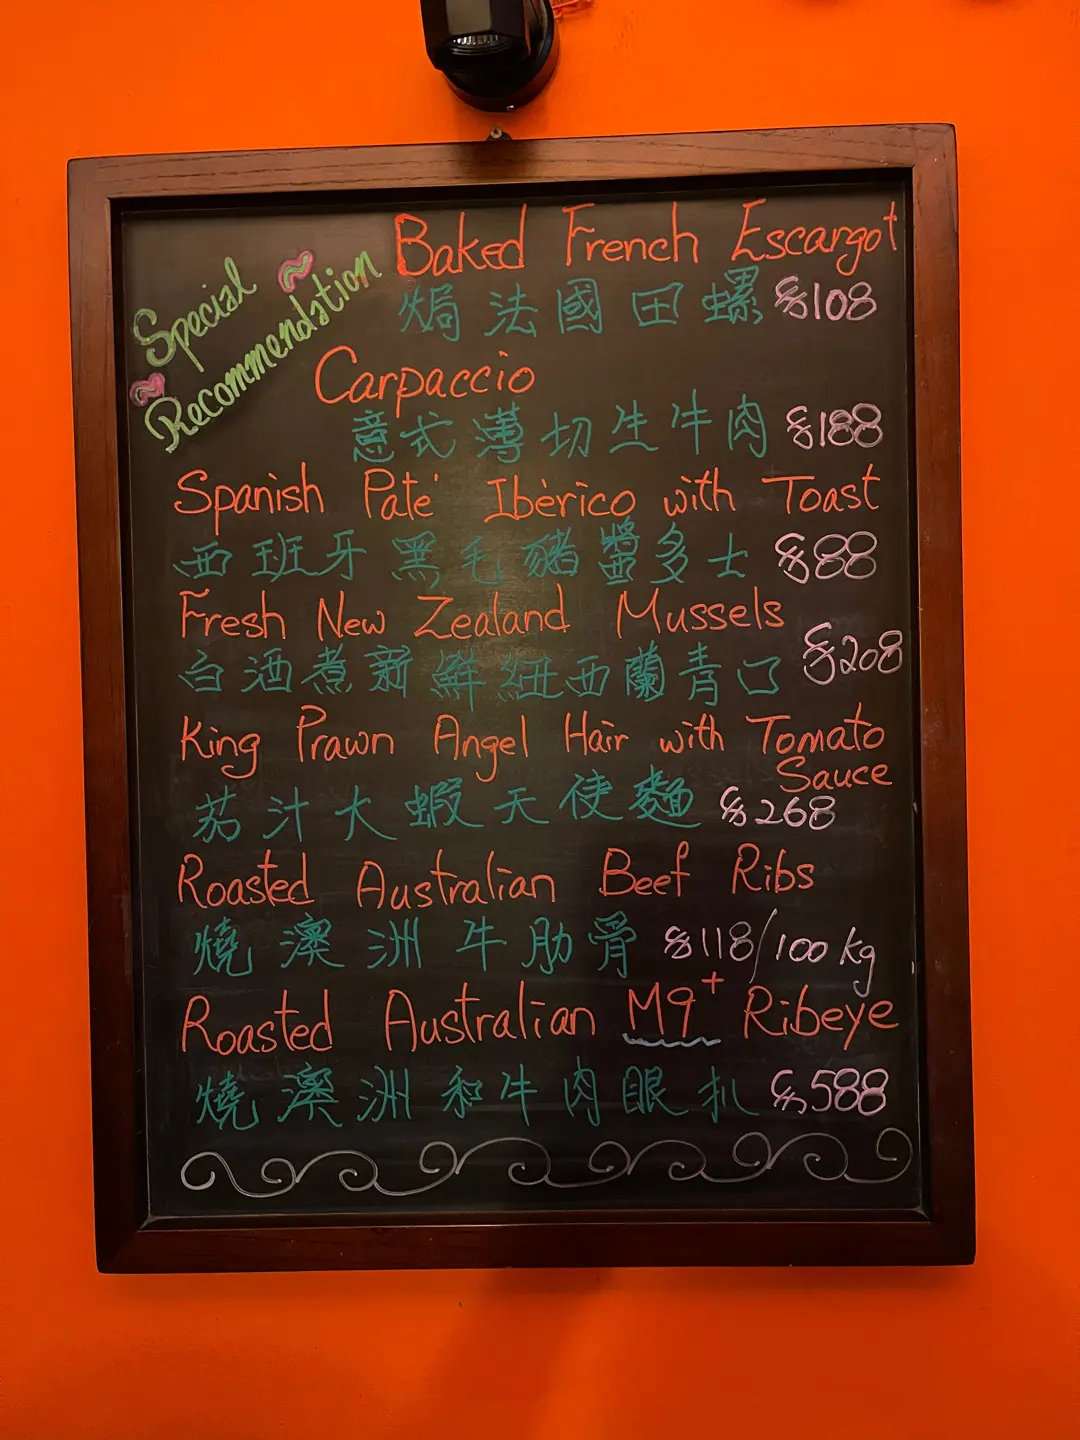 Special
Recommendation
Baked French Escargot
焗法國田螺 $108
Carpaccio
意式薄切生牛肉 $188
Spanish Pate' Ibèrico with Toast
西班牙黑毛豬醬多士 $88
Fresh New Zealand Mussels
白酒煮新鮮紐西蘭青口 $208
King Prawn Angel Hair with Tomato
Sauce
茄汁大蝦天使麵 $268
Roasted Australian Beef Ribs
燒澳洲牛肋骨 $118/100kg
Roasted Australian M9+ Ribeye
燒澳洲和牛肉眼扒 $588